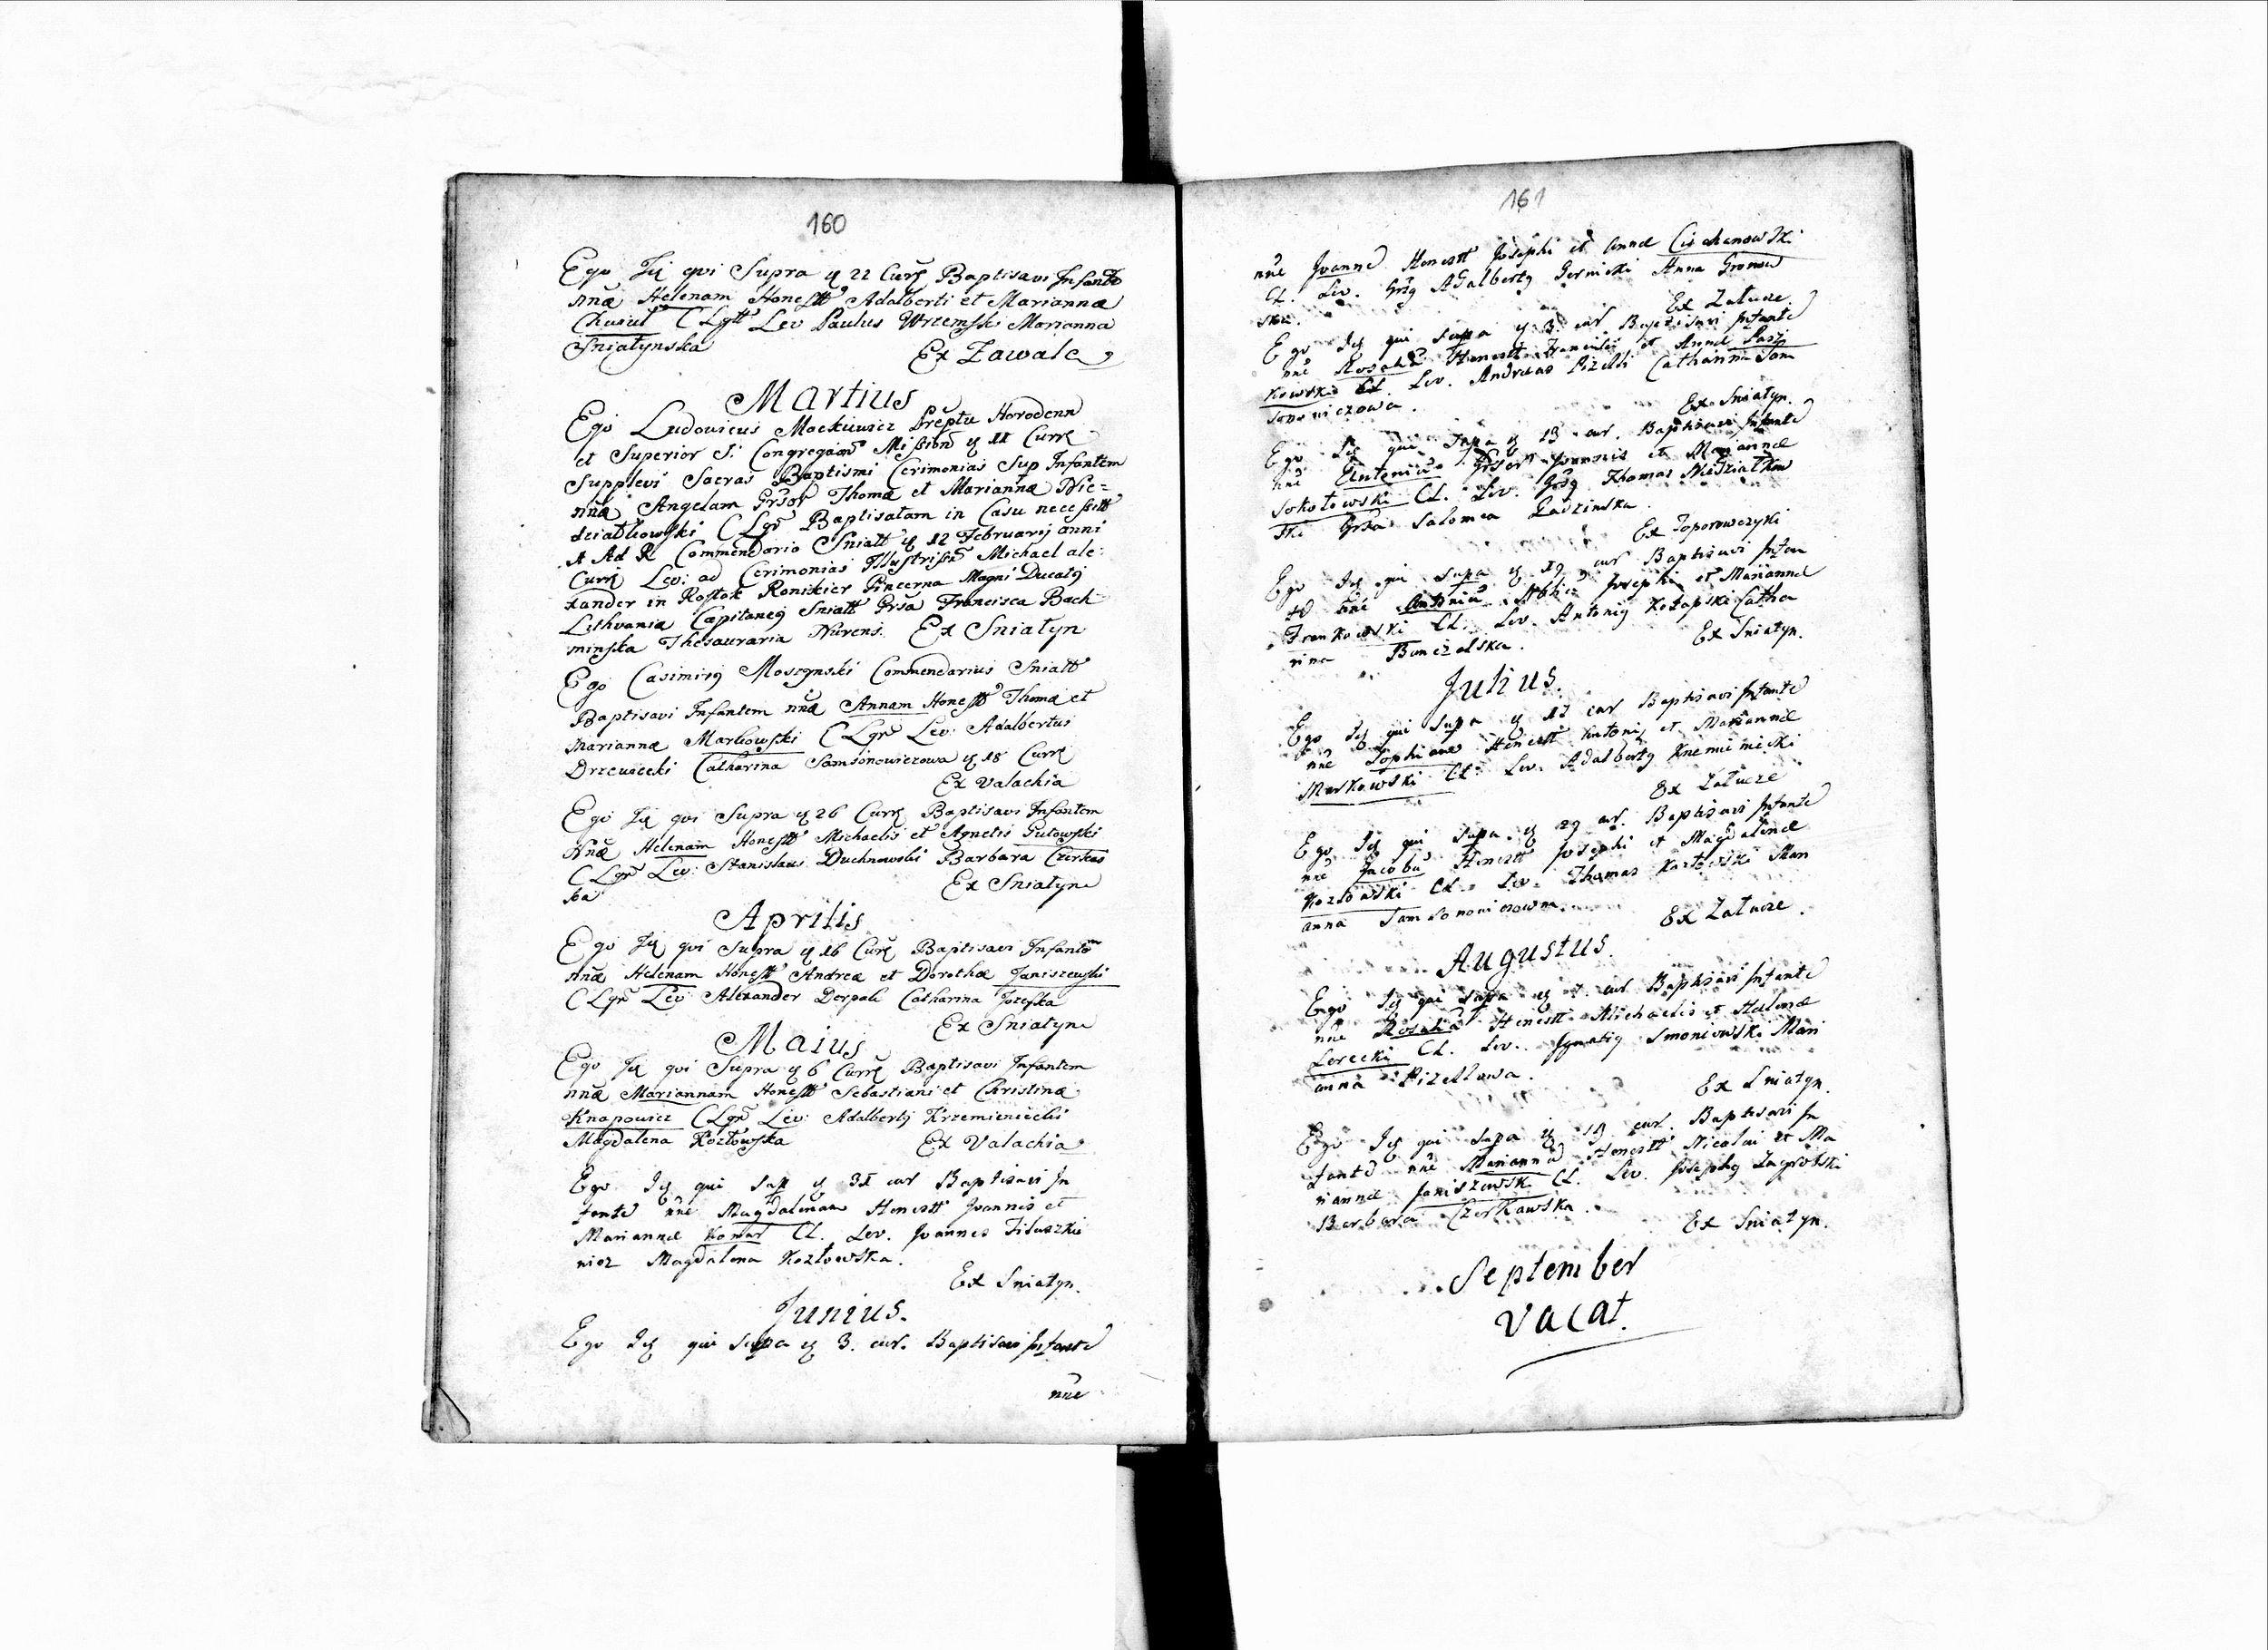 160
Ego Idē qvi Supra d 22 Curr Baptisavi Infante
nnā Helenam Honestt Adalberti et Mariannæ
Chusiul C Lgtt Lev Paulus Wrzemski Marianna
Sniatynska Ex Zawale
Martius
Ego Ludovicus Mackiewicz Præptu Horodenn
et Superior S. Congregaon Mission d 11 Curr
Supplevi Sacras Baptismi Cerimonias Sup Infantem
nnā Angelam Grsor Thomæ et Mariannæ Nie=
dziatkowski C Lgr Baptisatam in Casu necessitt
A Ad R Commendario Sniatt d 12 Februarij anni
Curr Lev: ad Cerimonias Illustriss Michael ale:
xander in Rostok Ronikier Pincerna Magni Ducatus
Lithvaniæ Capitaneus Sniatt Grsa Francisca Bach
minska Thesauraria Nurens. Ex Sniatyn
Ego Casimirus Moszynski Commendarius Sniatt
Baptisavi Infantem nnā Annam Honestt Thomæ et
Mariannæ Markowski C Lgr Lev: Adalbertus
Drzewiecki Catharina Samsonowiczowa d 18 Curr
Ex Valachia
Ego Idē qvi Supra d 26 Curr Baptisavi Infantem
Nnā Helenam Honestt Michaelis et Agnetis Gutowski
C Lgr Lev: Stanislaus Duchnowski Barbara Czerkas
ska Ex Sniatyn
Aprilis
Ego Idē qvi Supra d 16 Curr Baptisavi Infantem
nnā Helenam Honestt Andreæ et Dorothæ Janiszewski
C Lgr Lev Alexander Derpak Catharina Jozefska
Ex Sniatyn
Maius
Ego Idē qvi Supra d 6 Curr Baptisavi Infantem
nnā Mariannam Honestt Sebastiani et Christinæ
Knapowicz C Lgr Lev: Adalbertus Krzemieniecki
Magdalena Kozłowska Ex Valachia
Ego Idē qui Sup d 31 cur Baptisavi In
fante nne Magdalenam Honestt Joannis et
Mariannæ Komar CL. Lev. Joannes Tituszkie
nicz Magdalena Kozłowska.
Ex Sniatyn.
Junius.
Ego Idē qui supa d 3. cur. Baptisavi Infante
nne
161
nne Joanne Honestt Josephi et Annæ Ciechanowski
CL. Lev. Grsg Adalbertg Gernicki Anna Gronow
ska. Ex Załucze.
Ego Idē qui supa d 3. cur Baptisavi Infante
nne Rosaliā Honestt Francisci et Annæ Pasz
kowski CL Lev. Andreas Pizelli Catharina Sam
sonowiczowa. Ex Sniatyn.
Ego Idē qui Supa d 13 cur. Baptisavi Infante
nne Antoniu Grsor Joannis et Mariannæ
Sokołowski CL. Lev. Grsg Thomas Niedziałkow
ski Grsa Salomea Ładzinska.
Ex Toporowczyki
Ego Idē qui supa d 29 cur Baptisavi Infan
te nne Antoniu Nobiz Josephi et Mariannæ
Frankowski CL. Lev. Antonig Kołapski Catha
rina Bonczolska. Ex Sniatyn.
Julius.
Ego Idē qui Supa d 17 cur Baptisavi Infante
nne Sophiam Honestt Antonij et Mariannæ
Markowski CL. Lev. Adalbertg Knemienicki
Ex Załucze
Ego Idē qui supa d 29 cur. Baptisavi Infante
nne Jacobu Honestt Josephi et Magdalenæ
Kozłowski CL. Lev. Thomas Kozłowski Mari
anna Samsonowiczowna. Ex Załucze.
Augustus.
Ego Idē qui supa d 7. cur Baptisavi Infante
nne Rosaliā Honestt Michaelis et Helenæ
Lorecki CL. Lev. Ignatig Smoniowski Mari
anna Pizellowa. Ex Sniatyn.
Ego Idē qui Supa d 19 cur. Baptisavi In
fante nne Mariannā Honestt Nicolai et Ma
riannæ Janiszewski CL. Lev. Josephg Zagrobski
Barbara Czerkawska. Ex Sniatyn.
September
vacat.